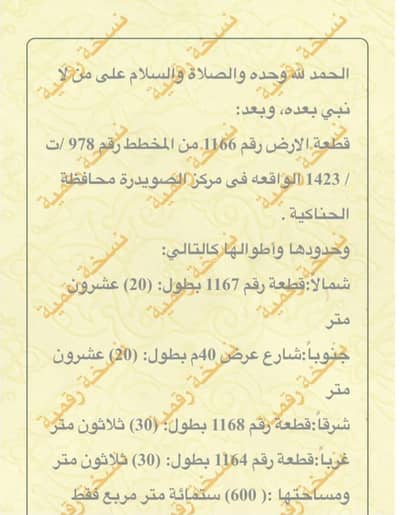 الحمد لله وحده والصلاة والسلام على من لا
نبي بعده، وبعد:
قطعة الارض رقم 1166 من المخطط رقم 978 /ت
/ 1423 الواقعه فى مركز الصويدرة محافظة
الحناكية .
وحدودها وأطوالها كالتالي:
شمالا:قطعة رقم 1167 بطول: (20) عشرون
متر
جنوباً:شارع عرض 40م بطول: (20) عشرون
متر
شرقاً:قطعة رقم 1168 بطول: (30) ثلاثون متر
غرباً:قطعة رقم 1164 بطول: (30) ثلاثون متر
ومساحتها :( 600) ستمائة متر مربع فقط
نسخة رقمية